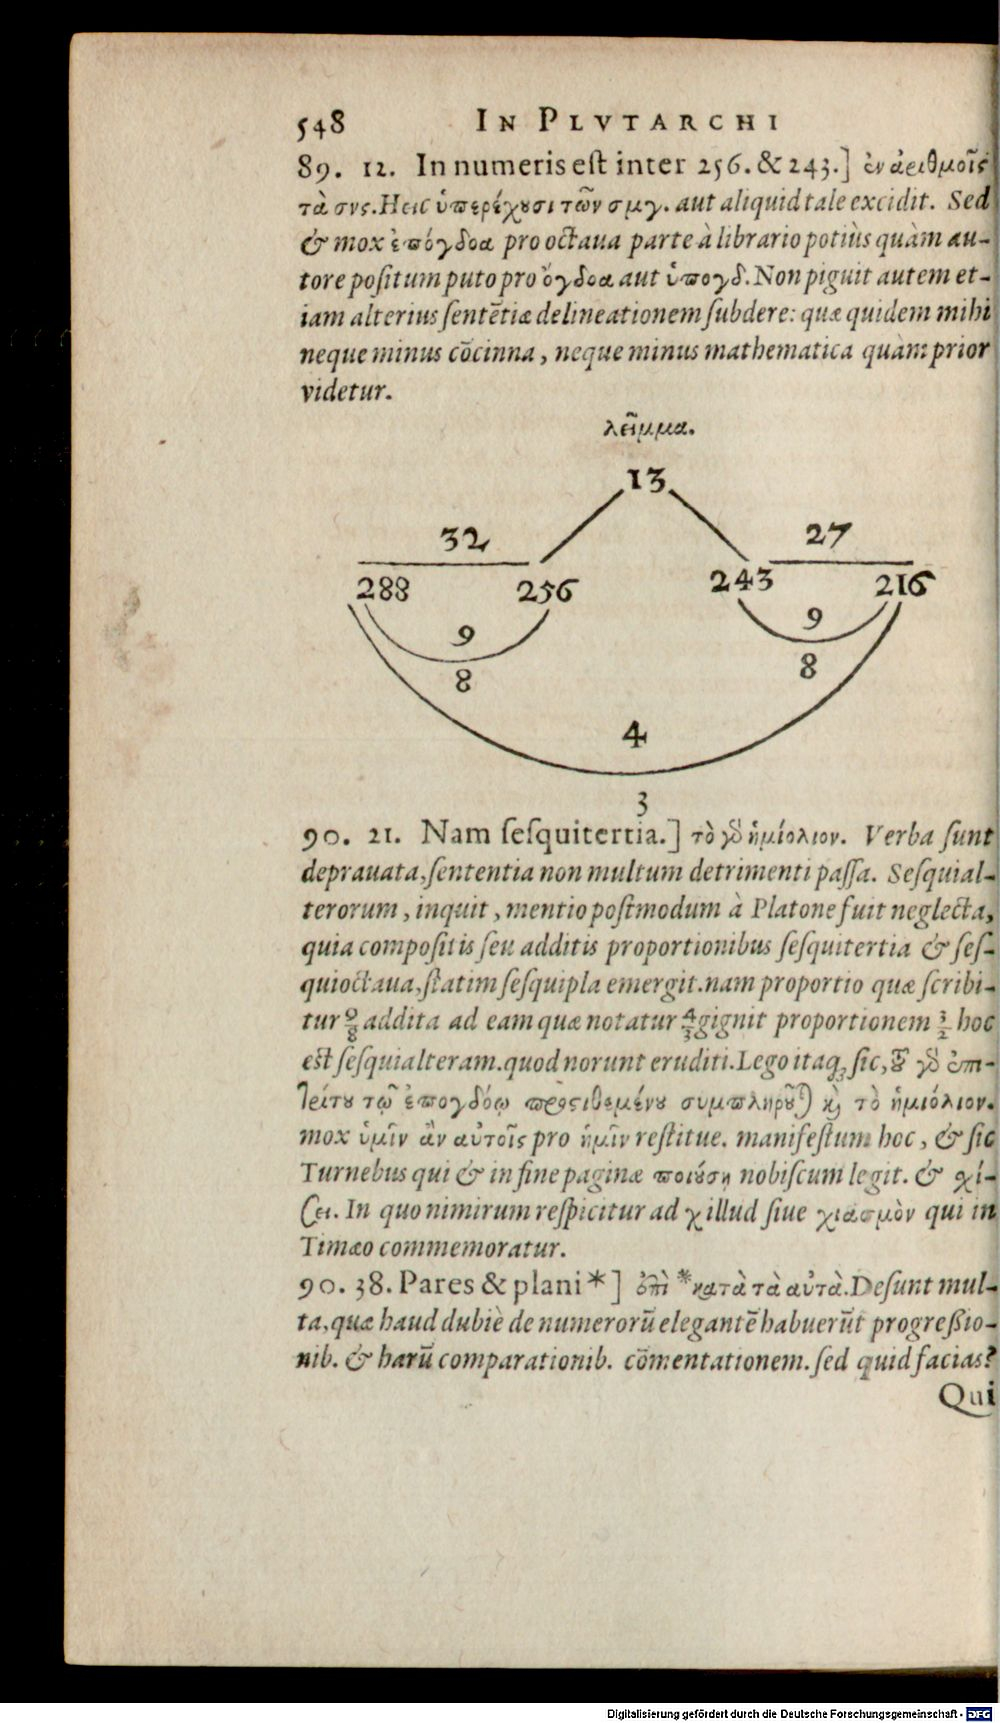 548 IN PLVTARCHI
89. 12. In numeris est inter 256. & 243.] ἐν ἀριθμοῖς
τὰ σνς. Heic ὑπερέχουσι τῶν σμγ. aut aliquid tale excidit. Sed
& mox ἐπόγδοα pro octaua parte à librario potiùs quàm au-
tore positum puto pro ὄγδοα aut ὑπογδ. Non piguit autem et-
iam alterius sentẽtiæ delineationem subdere: quæ quidem mihi
neque minus cõcinna, neque minus mathematica quàm prior
videtur.
λεῖμμα.
13
32 27
288 256 243 216
9 9
8 8
4
3
90. 21. Nam sesquitertia.] τὸ γὸ ἡμίολιον. Verba sunt
deprauata, sententia non multum detrimenti passa. Sesquial-
terorum, inquit, mentio postmodum à Platone fuit neglecta,
quia compositis seu additis proportionibus sesquitertia & ses-
quioctaua, statim sesquipla emergit. nam proportio quæ scribi-
tur 9/8 addita ad eam quæ notatur 4/3 gignit proportionem 3/2 hoc
est sesquialteram. quod norunt eruditi. Lego itaq; sic, τοῦ γὸ ἐπι-
τρίτου τῷ ἐπογδόῳ προςιθεμένου συμπληροῦται καὶ τὸ ἡμιόλιον.
mox ὑμῖν ἂν αὐτοῖς pro ἡμῖν restitue. manifestum hoc, & sic
Turnebus qui & in fine paginæ ποιούσῃ nobiscum legit. & χί-
ζει. In quo nimirum respicitur ad χ illud siue χιασμὸν qui in
Timæo commemoratur.
90. 38. Pares & plani *] ἐπὶ *κατὰ τὰ αὐτὰ. Desunt mul-
ta, quæ haud dubiè de numerorũ elegantẽ habuerũt progressio-
nib. & harũ comparationib. cõmentationem. sed quid facias?
Qui
Digitalisierung gefördert durch die Deutsche Forschungsgemeinschaft - DFG